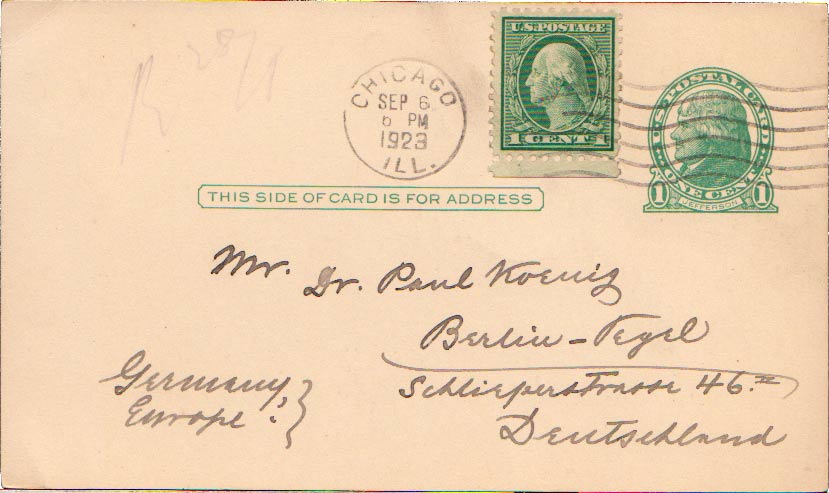 R 28/9
U.S. POSTAGE
1 CENT 1
CHICAGO
SEP 6
6 PM
1923
ILL.
U.S. POSTAL CARD
1 ONE CENT 1
JEFFERSON
THIS SIDE OF CARD IS FOR ADDRESS
Mr. Dr. Paul Koenig
Berlin-Tegel
Schlieperstrasse 46.II
Deutschland
Germany
Europe